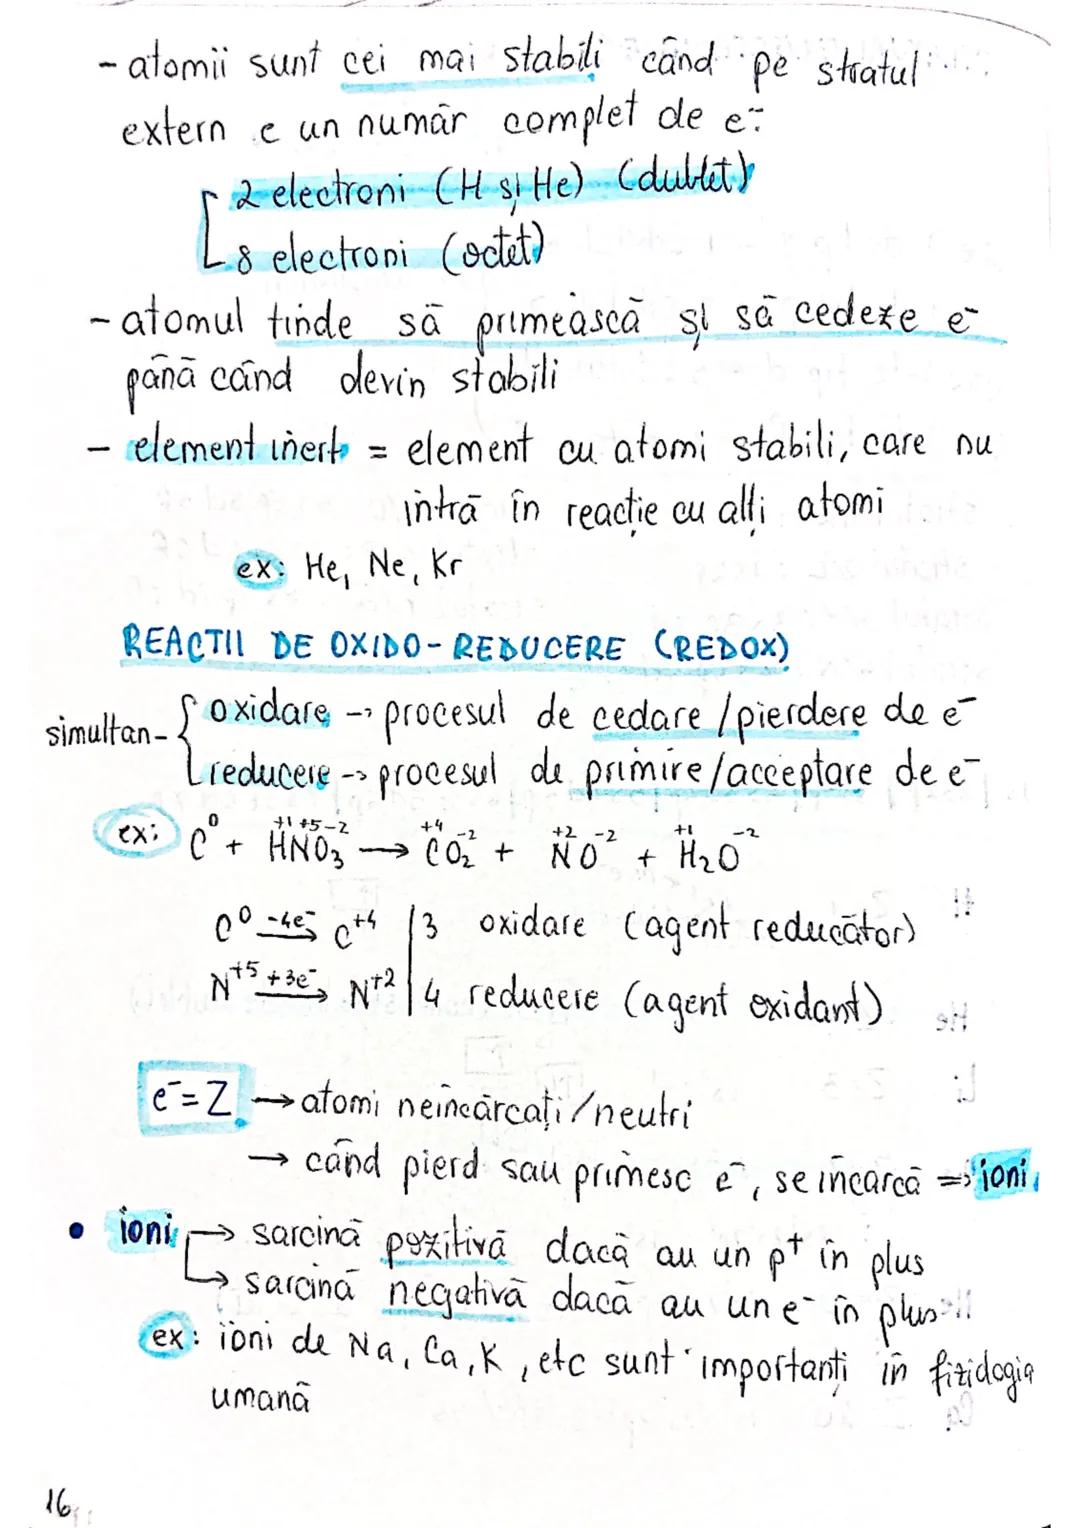 - atomii sunt cei mai stabili când pe stratul
extern e un număr complet de e⁻:
2 electroni (H și He) (dublet)
8 electroni (octet)
- atomul tinde să primească și să cedeze e⁻
până când devin stabili
- element inert = element cu atomi stabili, care nu
intră în reacție cu alți atomi
ex: He, Ne, Kr
REACȚII DE OXIDO-REDUCERE (REDOX)
simultan - { oxidare → procesul de cedare/pierdere de e⁻
reducere → procesul de primire/acceptare de e⁻
ex: C⁰ + H⁺¹N⁺⁵O₃⁻² → C⁺⁴O₂⁻² + N⁺²O⁻² + H₂⁺¹O⁻²
C⁰ -4e⁻→ C⁺⁴ | 3 oxidare (agent reducător)
N⁺⁵ +3e⁻→ N⁺² | 4 reducere (agent oxidant)
e⁻ = Z → atomi neîncărcați/neutri
→ când pierd sau primesc e⁻, se încarcă => ioni
• ioni → sarcină pozitivă dacă au un p⁺ în plus
→ sarcină negativă dacă au un e⁻ în plus
ex: ioni de Na, Ca, K, etc sunt importanți în fiziologia
umană
16